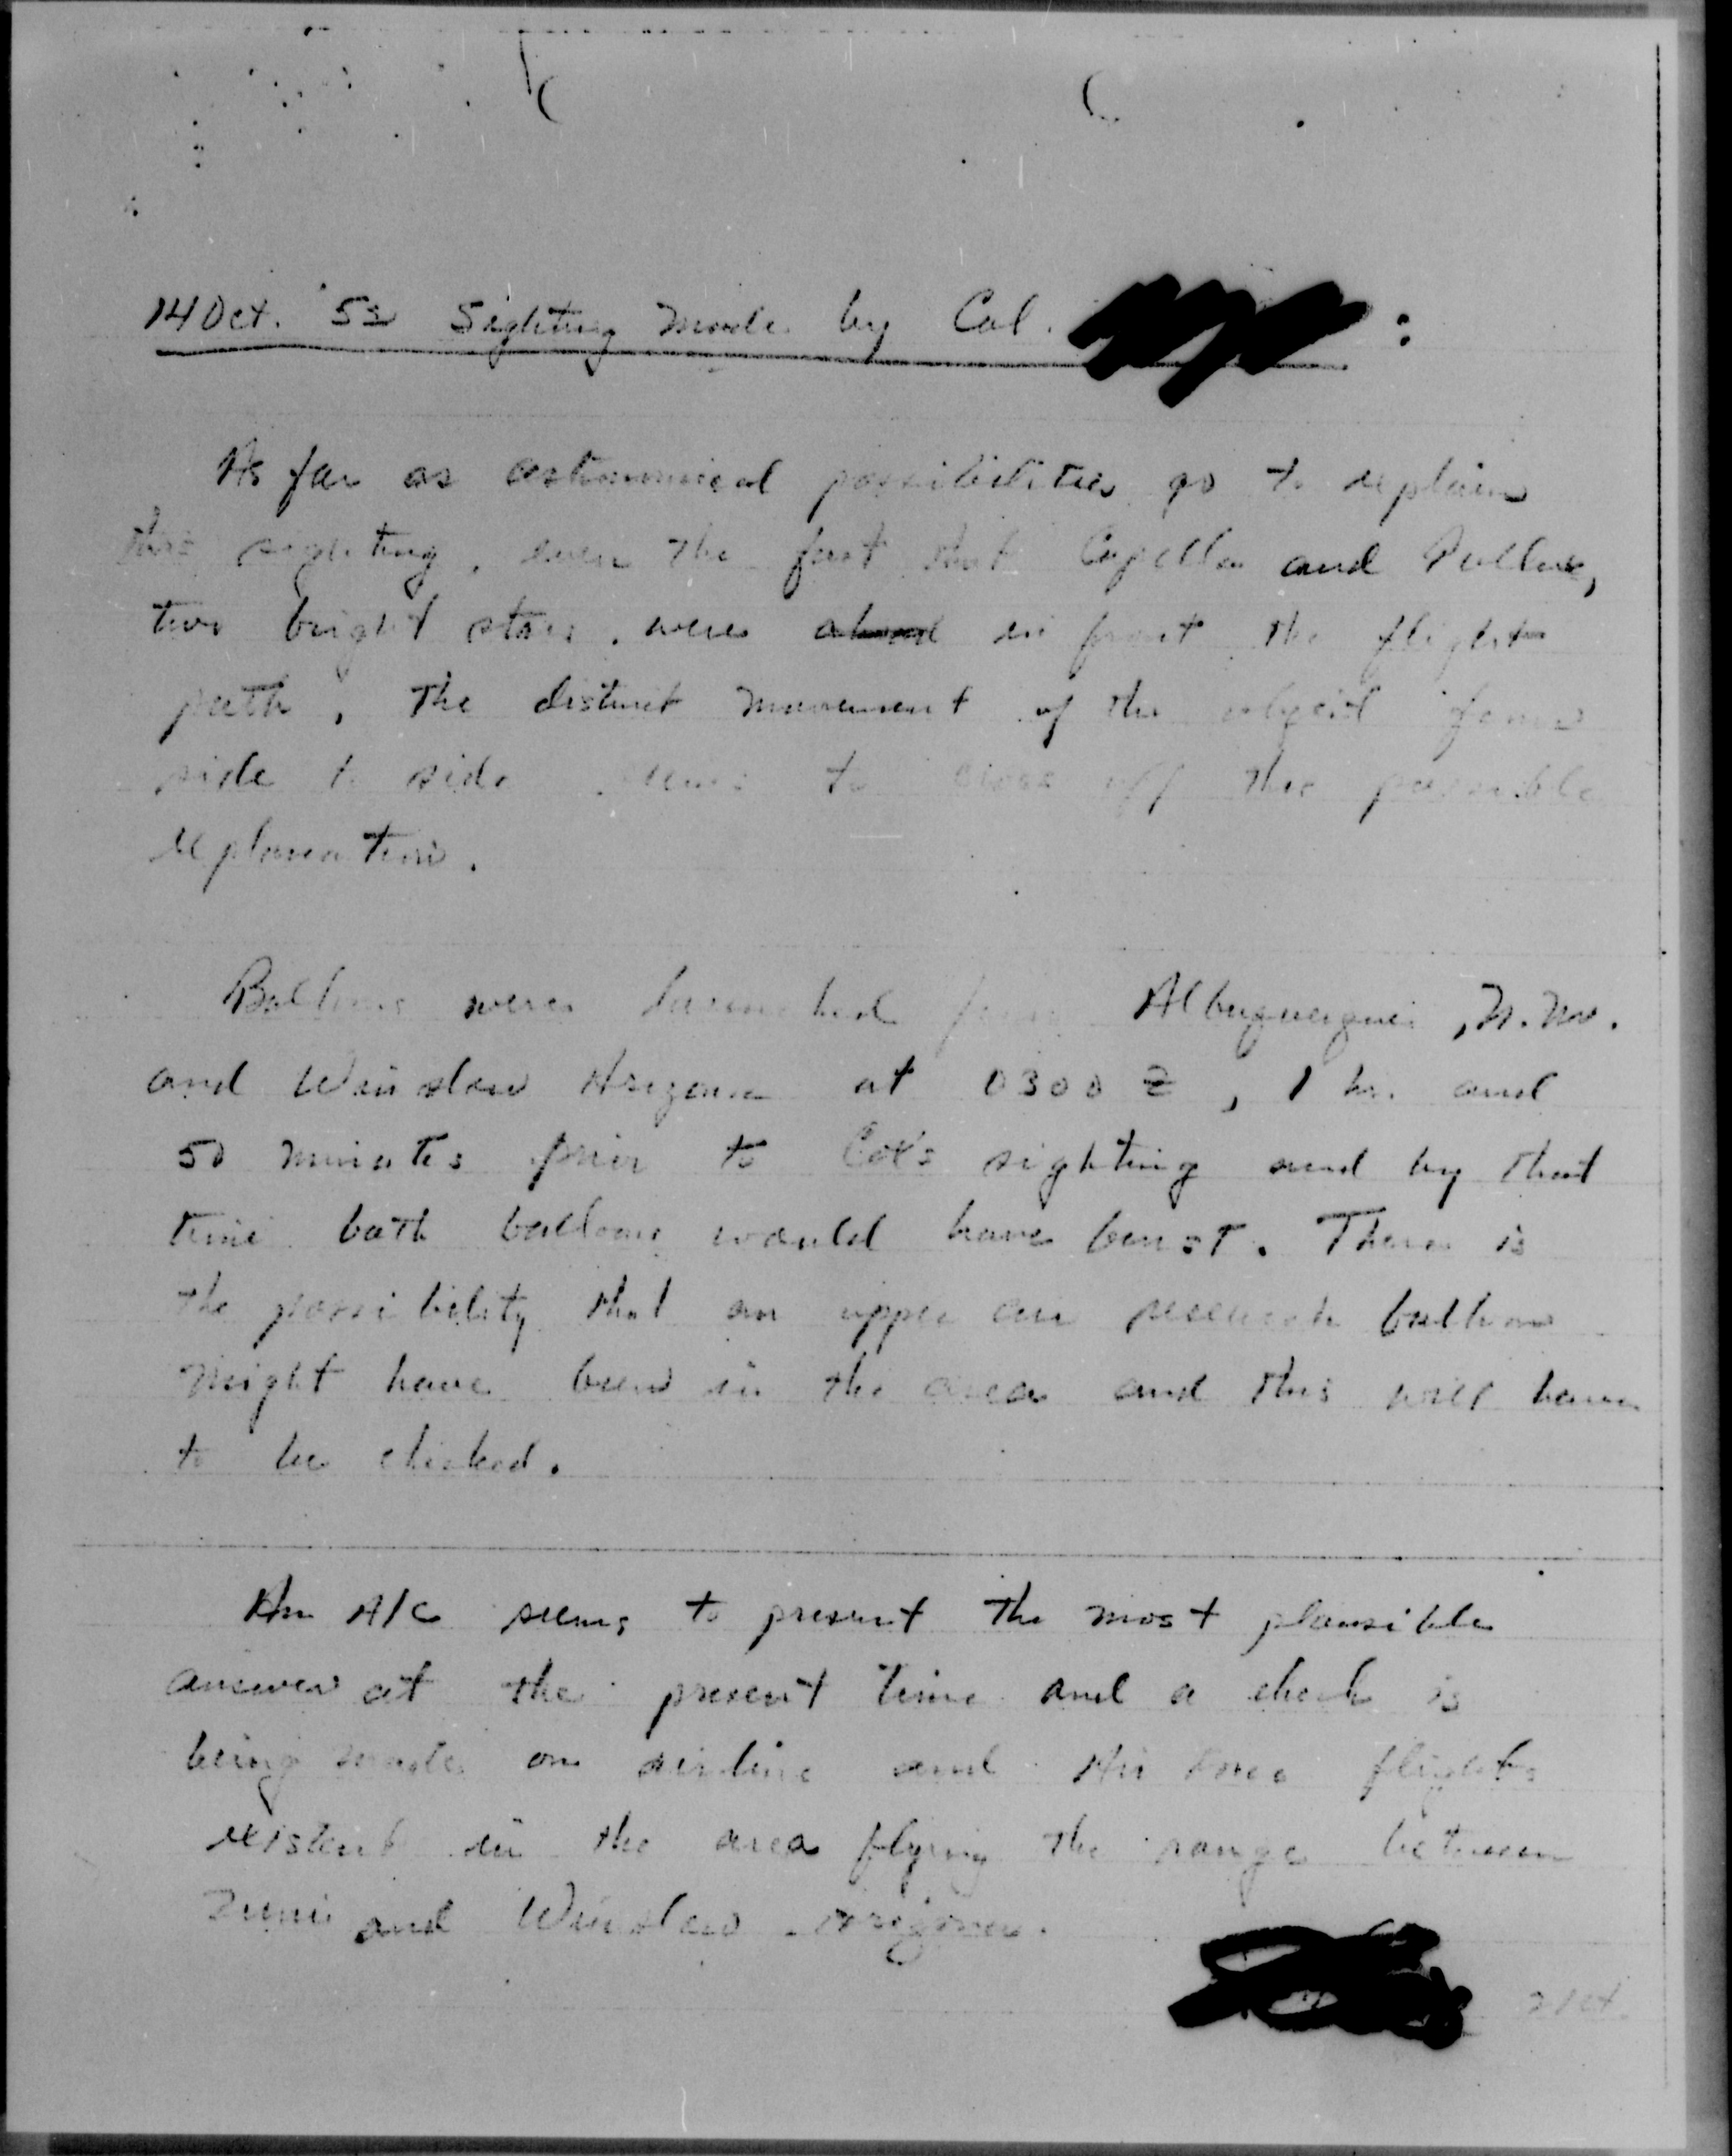 14 Oct. '52 Sighting made by Col.            :
As far as astronomical possibilities go to explain
this sighting, even the fact that Capella and Pollux,
two bright stars, were in front the flight
path, The distinct movement of the object from
side to side seems to off this possible
explanation.
Balloons were launched from Albuquerque, N. Mex.
and Winslow Arizona at 0300 Z, 1 hr. and
50 minutes prior to sighting and by that
time both balloons would have burst. There is
the possibility that an upper air research balloon
might have been in the area and this will have
to be checked.
An A/C seems to present the most plausible
answer at the present time and a check is
being made on airline and Air Force flights
existent in the area flying the range between
Zuni and Winslow Arizona.